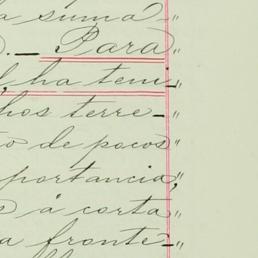 a suma "
). — Para "
l, ha teni- "
hos terre- "
to de pocos "
portancia, "
s á corta "
a fronte- "